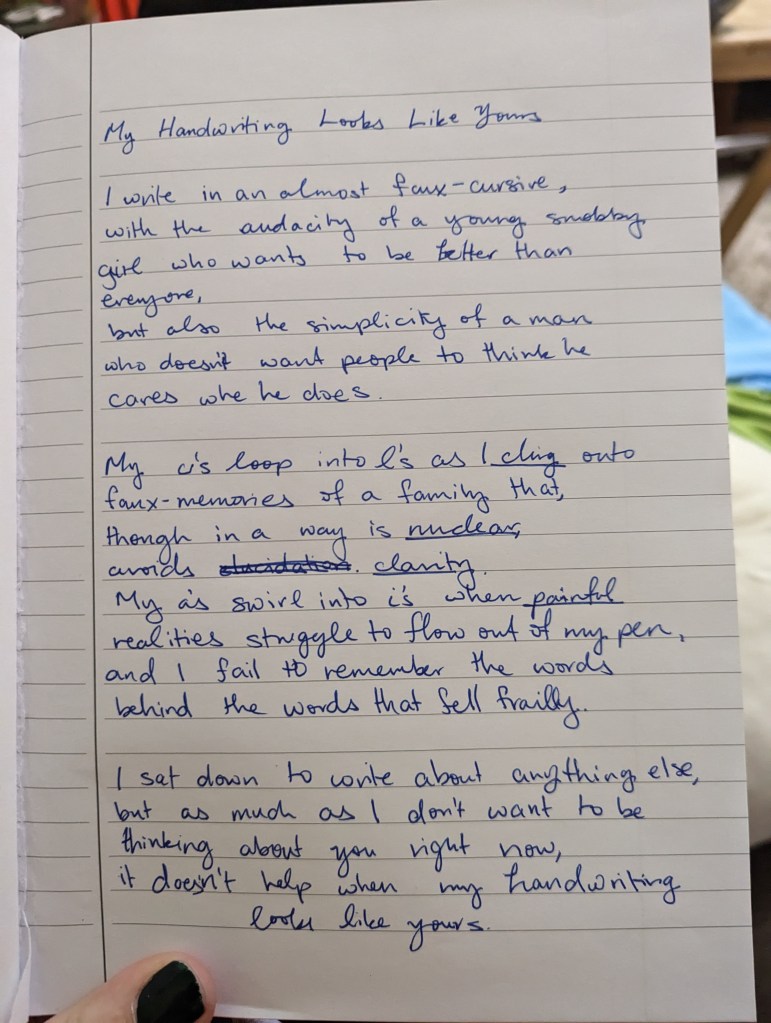 My Handwriting Looks Like Yours
I write in an almost faux-cursive,
with the audacity of a young snobby
girl who wants to be better than
everyone,
but also the simplicity of a man
who doesn't want people to think he
cares whe he does.
My c's loop into l's as I cling onto
faux-memories of a family that,
though in a way is nuclear,
avoids elucidation. clarity.
My a's swirl into i's when painful
realities struggle to flow out of my pen,
and I fail to remember the words
behind the words that fell frailly.
I sat down to write about anything else,
but as much as I don't want to be
thinking about you right now,
it doesn't help when my handwriting
looks like yours.